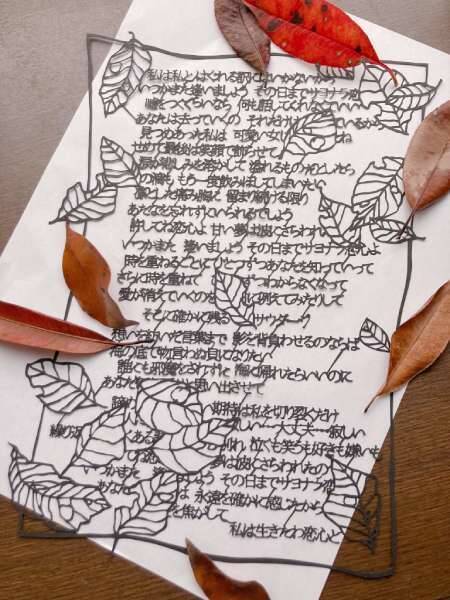 私は私とはぐれる訳にはいかないから
いつかまた逢いましょう その日までサヨナラ恋
嘘をつくぐらいなら 何も話してくれなくていい
あなたは去っていくの それだけ ているから
見つめあった私は 可愛い女じ ね
せめて最後は笑顔で飾らせて
涙が悲しみを溶かして 溢れるものだとしたら
の滴も もう一度飲みほしてしまいたい
凛とした痛み胸に 留まり続ける限り
あなたを忘れずにいられるでしょう
許してね恋心よ 甘い夢は波にさらわれ
いつかまた 逢いましょう その日までサヨナラ恋心よ
時を重ねるごとに ひとつずつあなたを知っていって
さらに時を重ねて ずつわからなくなって
愛が消えていくのを に例えてみたりして
そこに確かに残る サウダージ
想いを紡いだ言葉まで 影を背負わせるのならば
海の底で物言わぬ貝になりたい
誰にも邪魔をされずに 海に帰れたらいいのに
あなた と思い出させて
諦め 期待は私を切り裂くだけ
しい…大丈夫…寂しい
繰り返 ある 別れ 泣くも笑うも好きも嫌いも
恋 夢は波にさらわれたの
いつかまた その日までサヨナラ恋
あなた は 永遠を確かに感じたから
を焦がして
私は生きたわ恋心と